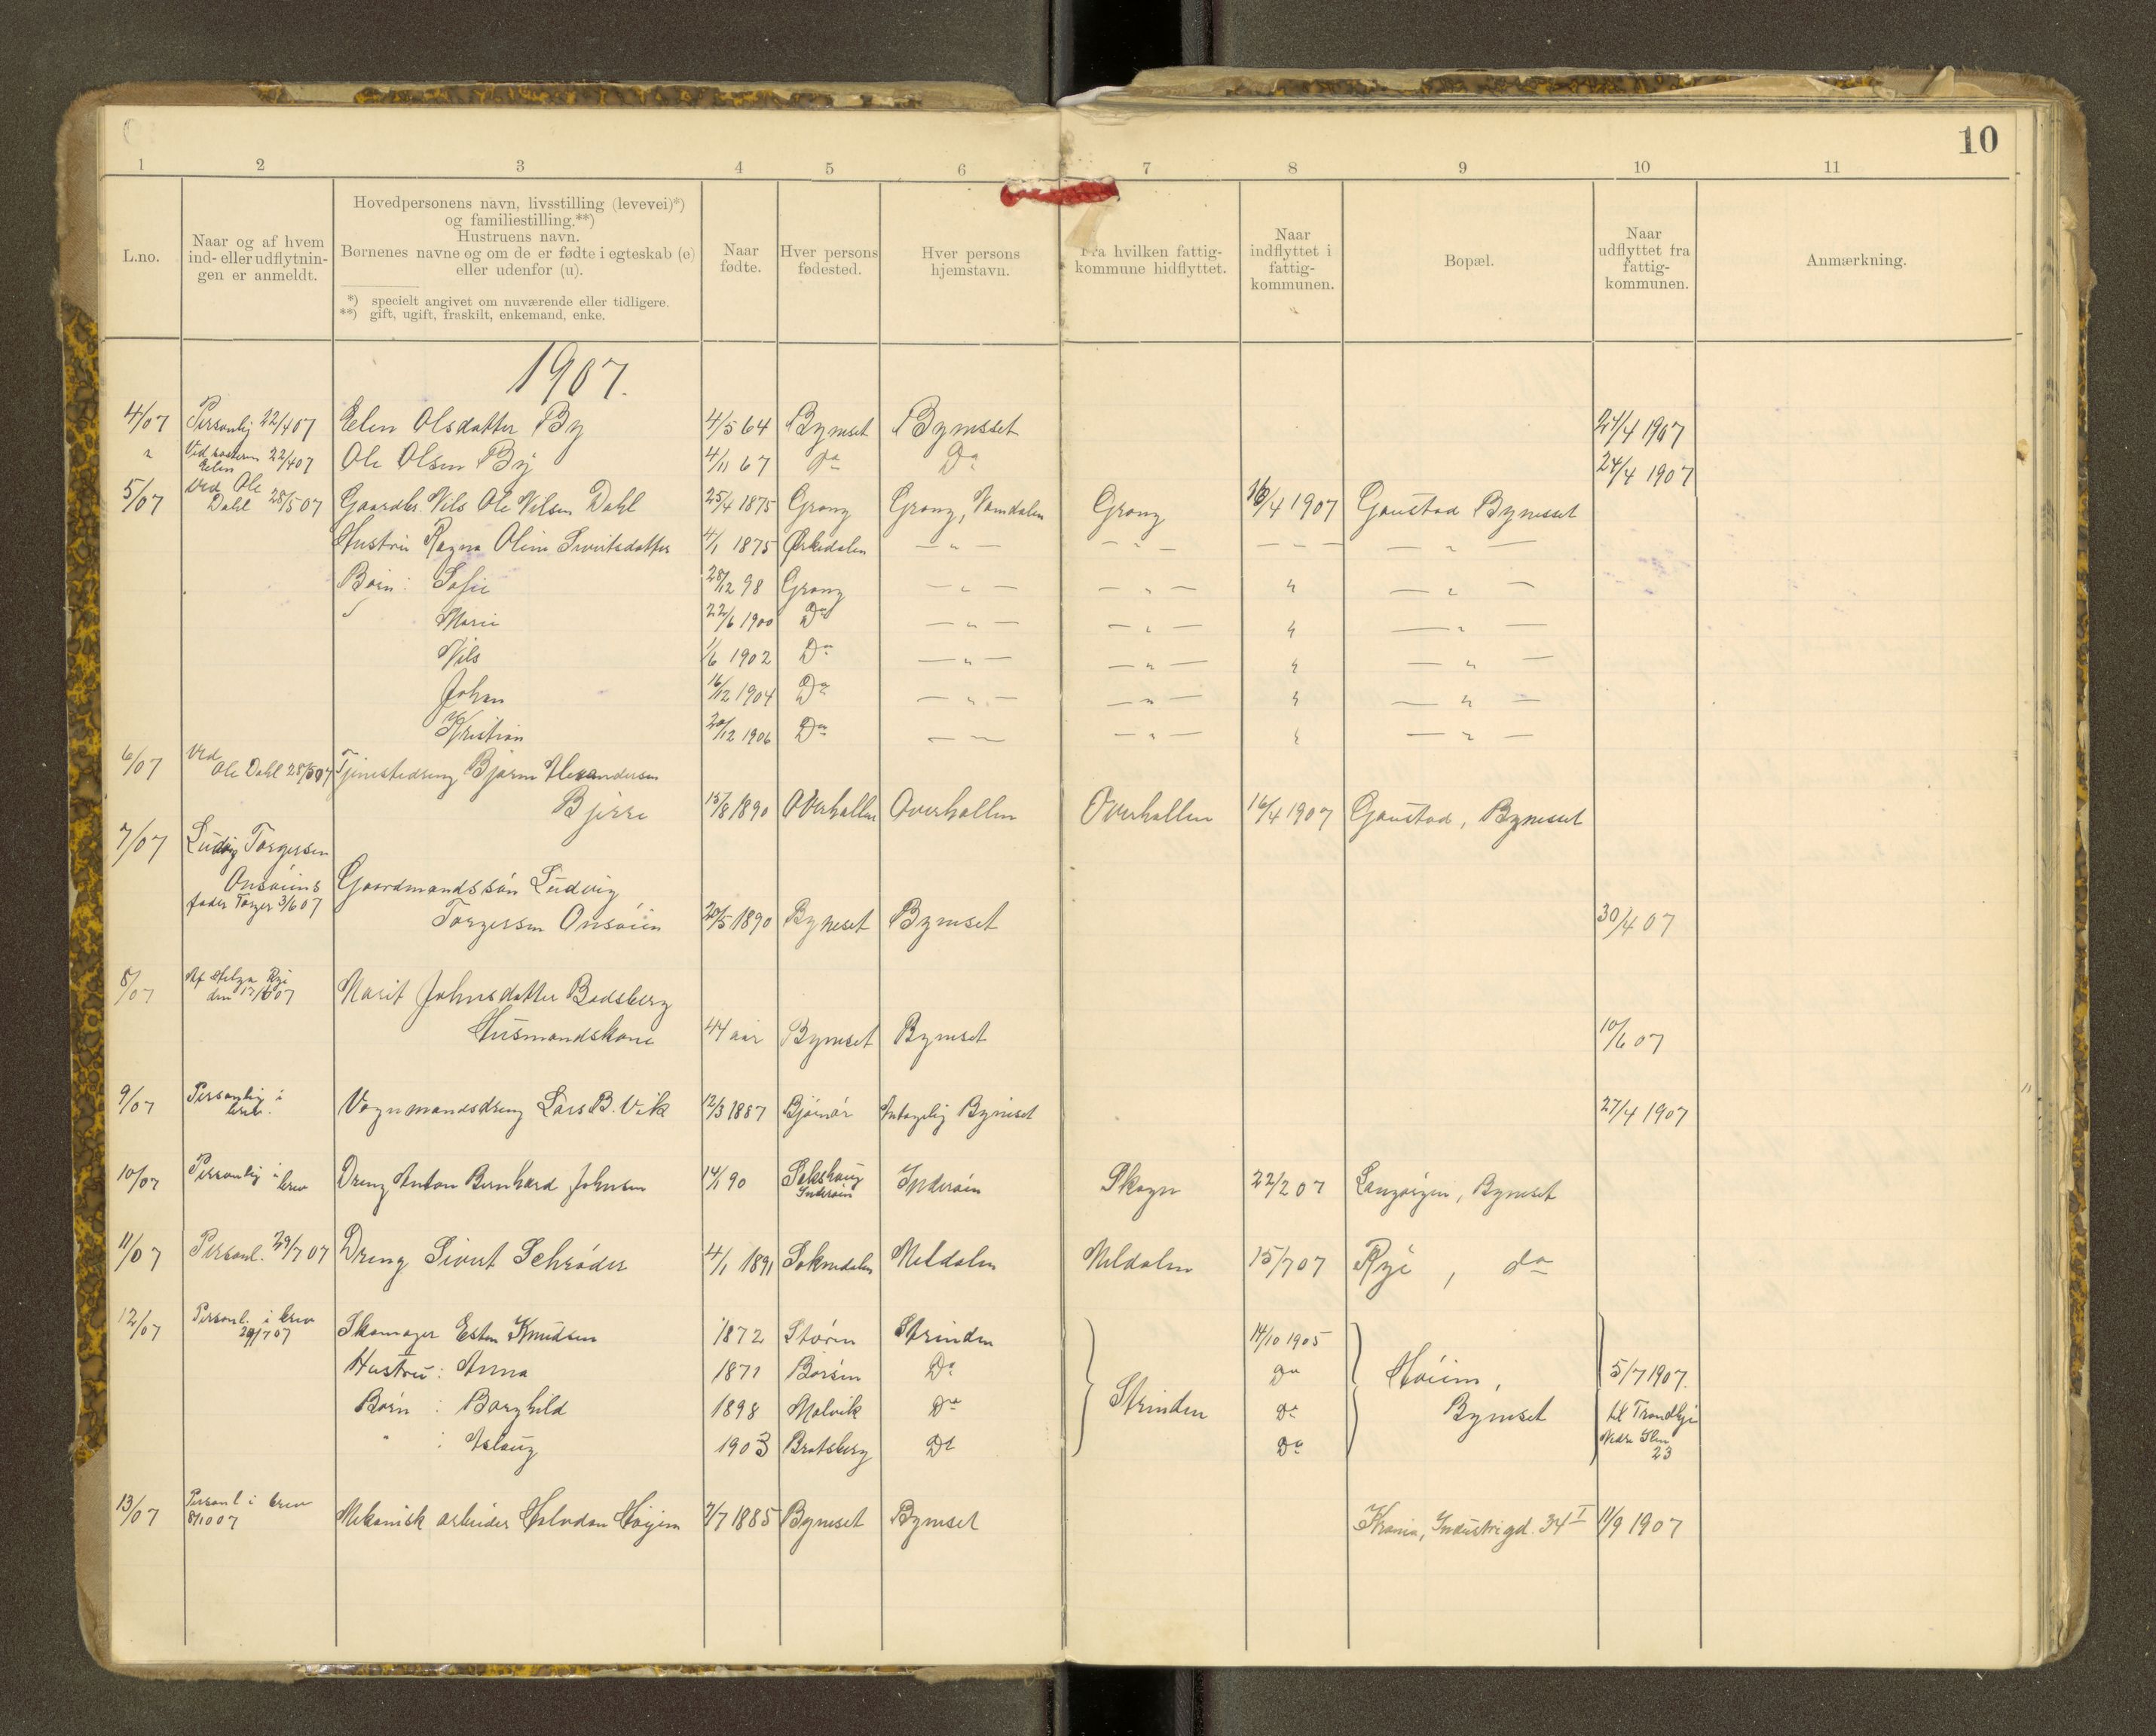 10
1 2 3 4 5 6 7 8 9 10 11
L.no.
Naar og af hvem
ind- eller udflytnin-
gen er anmeldt.
Hovedpersonens navn, livsstilling (levevei)*)
og familiestilling.**)
Hustruens navn.
Børnenes navne og om de er fødte i egteskab (e)
eller udenfor (u).
*) specielt angivet om nuværende eller tidligere.
**) gift, ugift, fraskilt, enkemand, enke.
Naar
fødte.
Hver persons
fødested.
Hver persons
hjemstavn.
Fra hvilken fattig-
kommune hidflyttet.
Naar
indflyttet i
fattig-
kommunen.
Bopæl.
Naar
udflyttet fra
fattig-
kommunen.
Anmærkning.
1907.
4/07 Personlig 22/4 07 Elen Olsdatter By 4/5 64 Bynæset Bynæsset 24/4 1907
" Ved søsteren Elen 22/4 07 Ole Olsen By 4/11 67 Do Do 24/4 1907
5/07 Ved Ole
Dahl 28/5 07 Gaardbr. Nils Ole Nilsen Dahl 25/4 1875 Grong Grong, Namdalen Grong 16/4 1907 Gaustad Bynesset
Hustru Ragna Oline Sivertsdatter 4/1 1875 Ørkedalen — " — — " — — — — — " —
Børn: Sofie 28/12 98 Grong — " — — " — " — " —
Marie 22/6 1900 Do — " — — " — " — " —
Nils 1/6 1902 Do — " — — " — " — " —
Johan 16/12 1904 Do — " — — " — " — " —
Kristian 20/12 1906 Do — — — " — " — " —
6/07 Ved
Ole Dahl 28/5 07 Tjenestedreng Bjarne Alexandersen
Bjerre 15/8 1890 Overhallen Overhallen Overhallen 16/4 1907 Gaustad, Bynesset
7/07 Ludvig Torgersen
Onsøiens Gaardmandssøn Ludvig
fader Torger 3/6 07
Torgersen Onsøien 20/5 1890 Byneset Byneset 30/4 07
8/07 Af Helga Rye
den 17/6 07 Marit Johnsdatter Bodsberg
Husmandskone 44 aar Byneset Byneset 10/6 07
9/07 Personlig i
brev. Vognmandsdreng Lars B. Vik 12/3 1887 Bjørnør Antagelig Byneset 27/4 1907
10/07 Personlig i
brev Dreng Anton Bernhard Johnsen 14/1 90 Sakshaug
Inderøen Inderøen Skogn 22/2 07 Langørgen, Byneset
11/07 Personl. 29/7 07 Dreng Sivert Schrøder 4/1 1891 Soknedalen Meldalen Meldalen 15/7 07 Rye, do
12/07 Personl. i brev
29/7 07 Skomager Esten Knudsen 1872 Støren Strinden 14/10 1905
Hustru: Anna 1871 Børsen Do Do Høiem, 5/7 1907.
Børn: Borghild 1898 Malvik Do Strinden Do Byneset til Trondhj
" : Aslaug 1903 Bratsberg Do Do Nedre Ilen
23
13/07 Personl i brev
8/10 07 Mekanisk arbeider Halvdan Høiem 7/7 1885 Byneset Byneset Krania, Industrigd. 34 I 11/9 1907